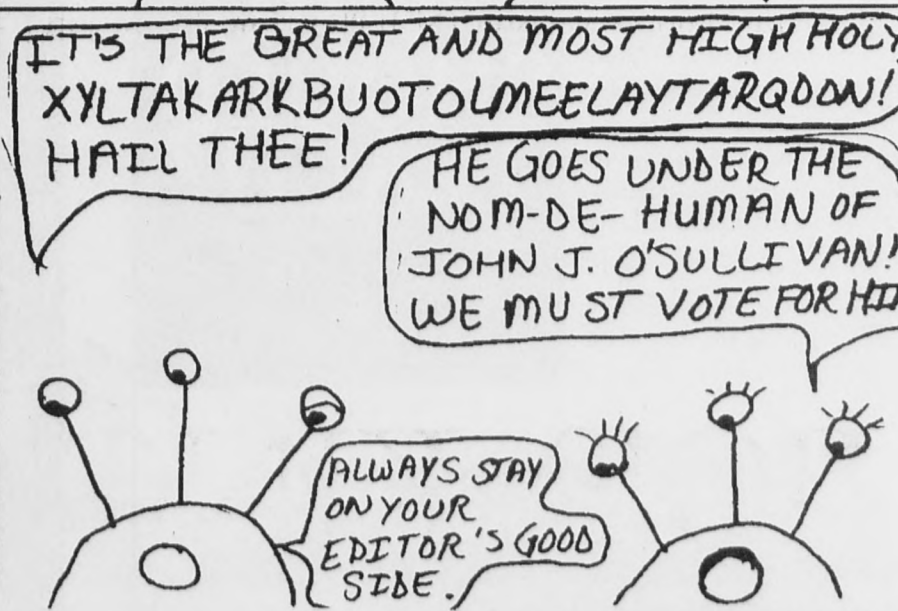 IT'S THE GREAT AND MOST HIGH HOLY
XYLTAKARKBUOTOLMEELAYTARQDON!
HAIL THEE!
HE GOES UNDER THE
NOM-DE-HUMAN OF
JOHN J. O'SULLIVAN!
WE MUST VOTE FOR
ALWAYS STAY
ON YOUR
EDITOR'S GOOD
SIDE.